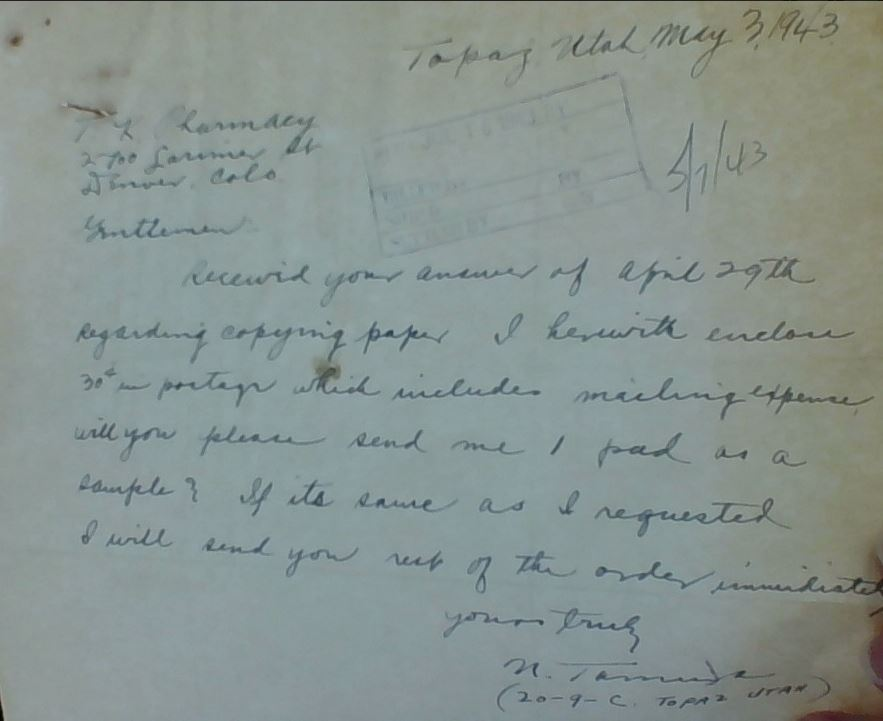 Topaz Utah May 3, 1943
T K Pharmacy
2700 Larimer St
Denver, Colo
5/7/43
Gentlemen
Received your answer of April 29th
regarding copying paper I herewith enclose
30¢ in postage which includes mailing expense.
will you please send me 1 pad as a
sample? If its same as I requested
I will send you rest of the order immidiately
yours truly
N.
(20-9-C. TOPAZ UTAH)